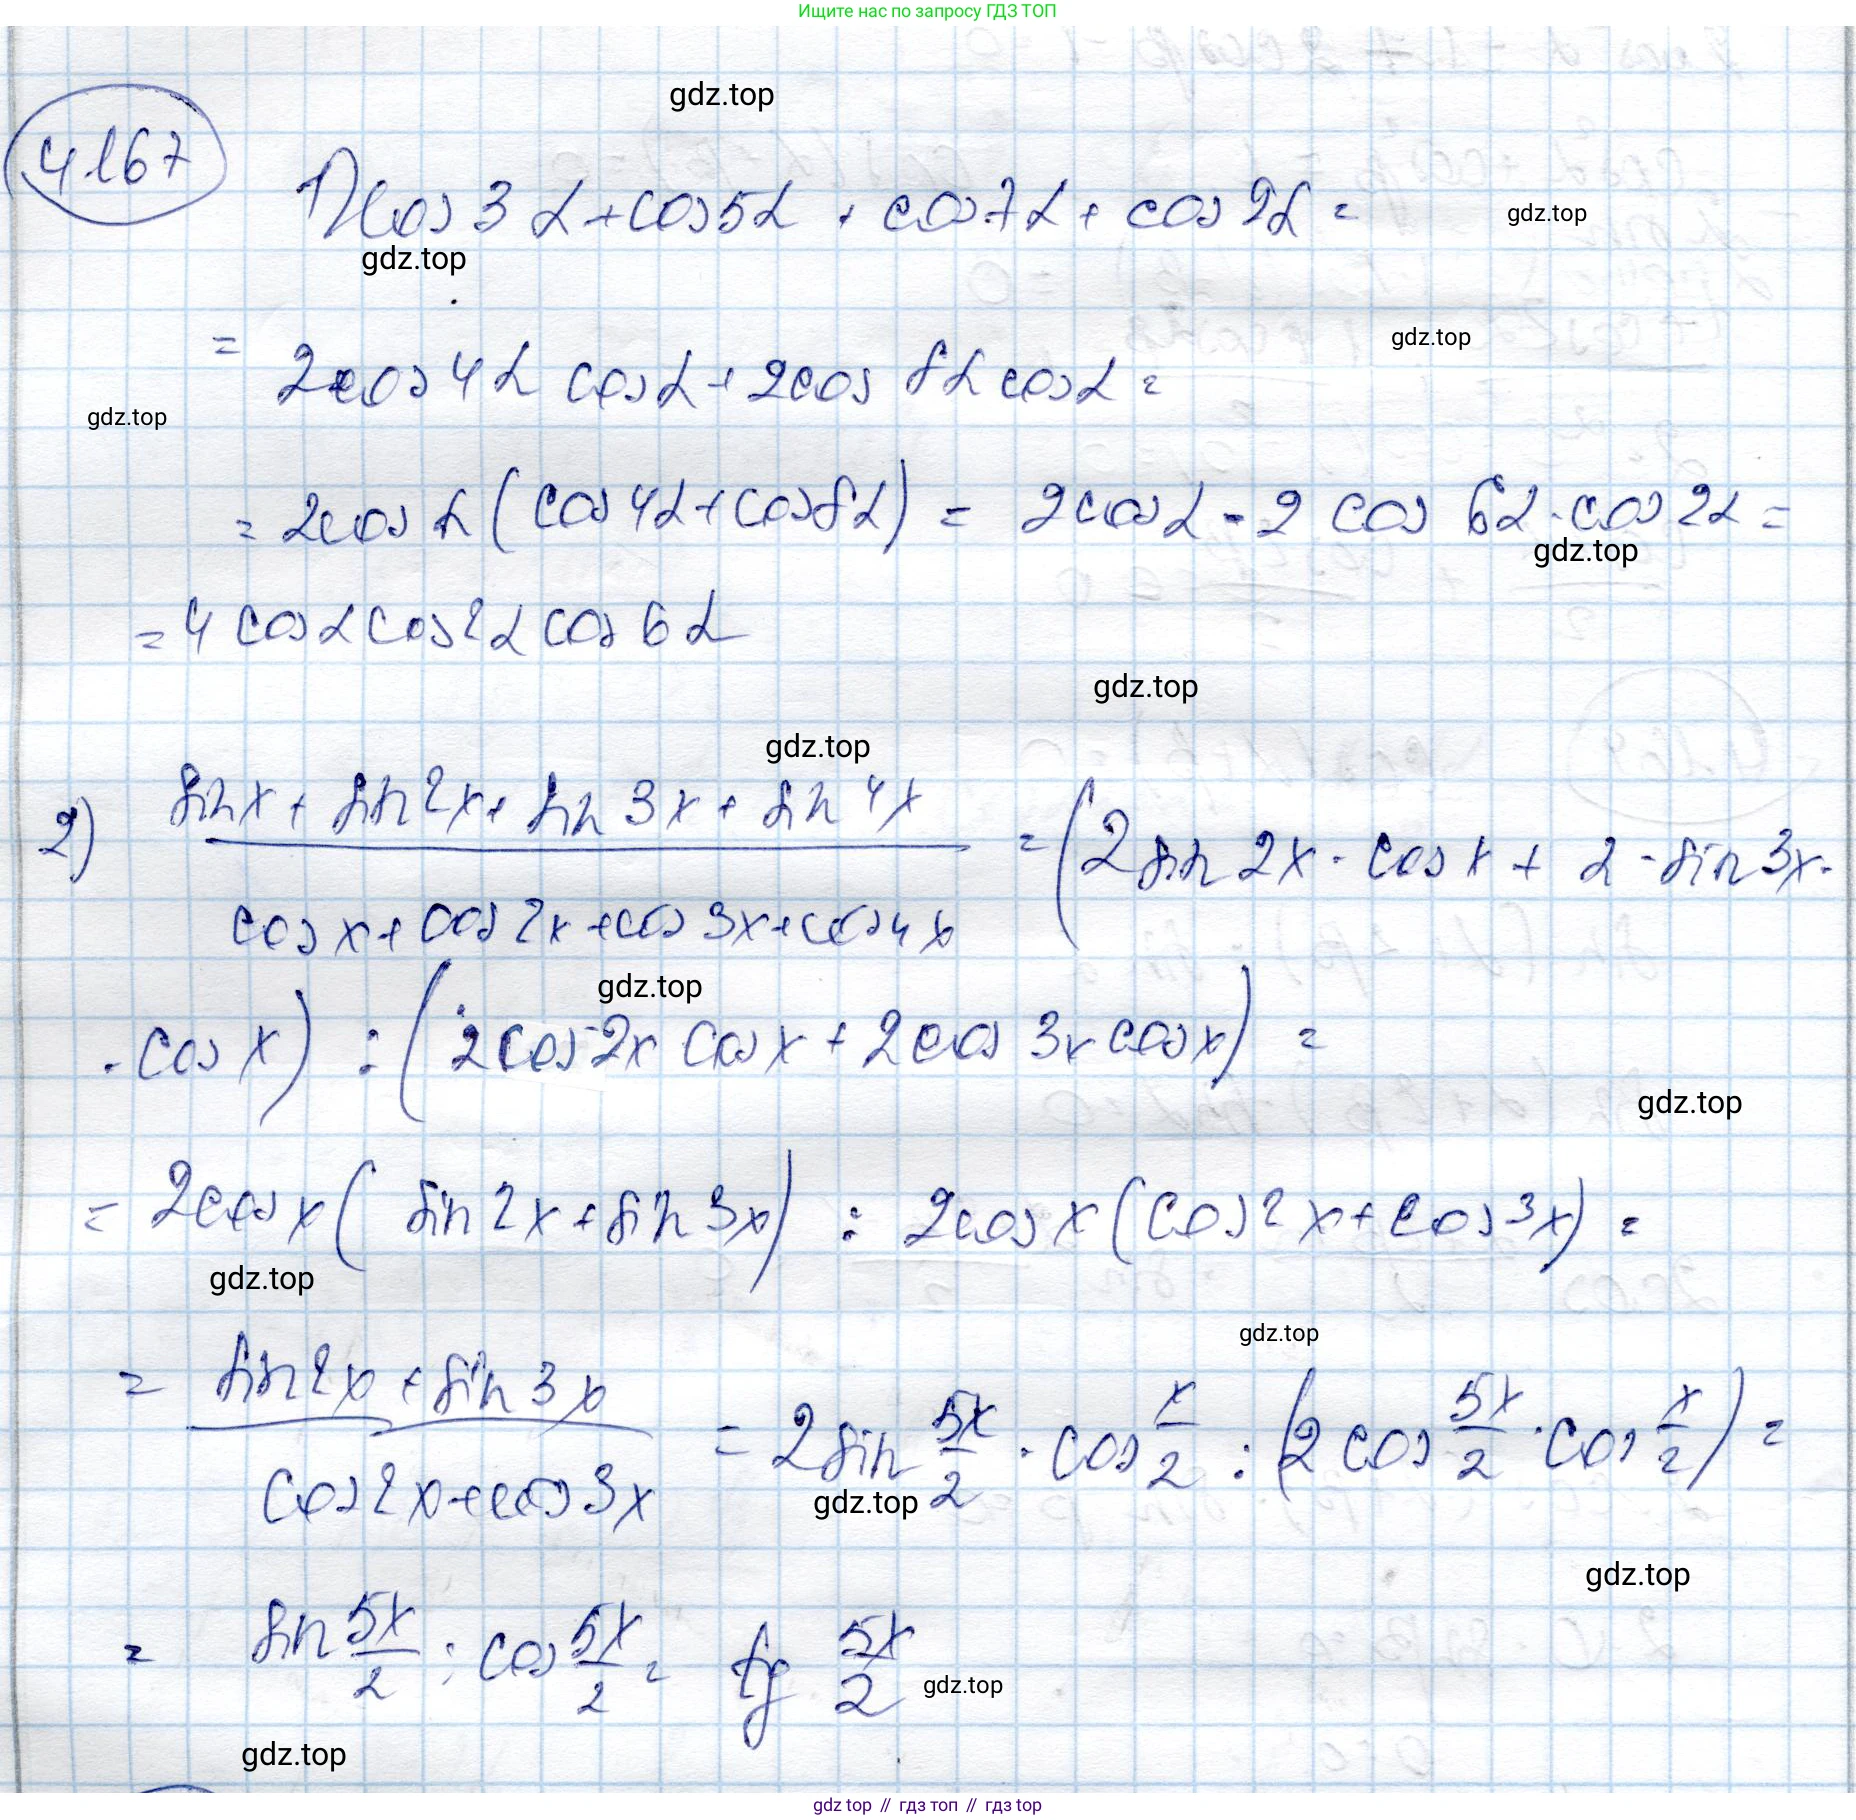 Ищите нас по запросу ГДЗ ТОП
gdz.top
4.167
1) cos 3α + cos 5α + cos 7α + cos 9α =
gdz.top
gdz.top
gdz.top
= 2cos 4α cos α + 2cos 8α cos α =
gdz.top
= 2cos α (cos 4α + cos 8α) = 2cos α · 2 cos 6α · cos 2α =
gdz.top
= 4 cos α cos 2α cos 6α
gdz.top
gdz.top
2) (sin x + sin 2x + sin 3x + sin 4x) / (cos x + cos 2x + cos 3x + cos 4x) = (2 sin 2x · cos x + 2 · sin 3x ·
gdz.top
· cos x) : (2cos 2x cos x + 2cos 3x cos x) =
gdz.top
= 2cos x (sin 2x + sin 3x) : 2cos x (cos 2x + cos 3x) =
gdz.top
gdz.top
= (sin 2x + sin 3x) / (cos 2x + cos 3x) = 2 sin 5x/2 · cos x/2 : (2 cos 5x/2 · cos x/2) =
gdz.top
gdz.top
= sin 5x/2 : cos 5x/2 = tg 5x/2
gdz.top
gdz.top
gdz top // гдз топ // гдз top